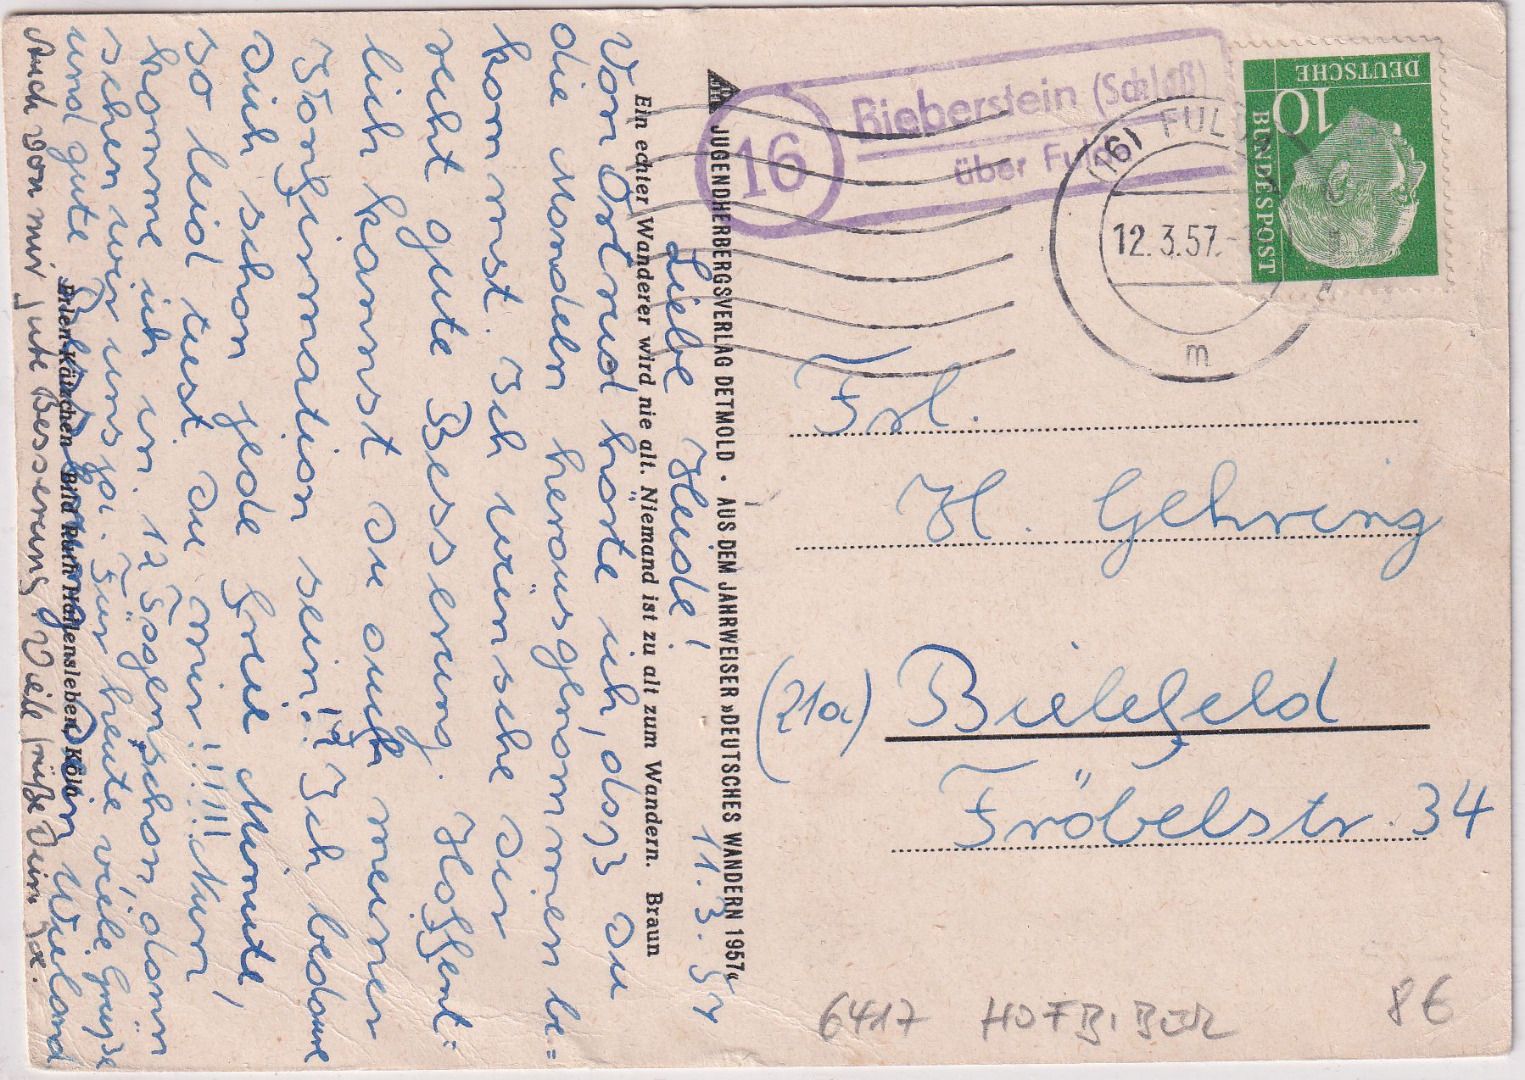 11.3.57
Liebe Heide!
Von Ortrud hörte ich, dass Du
die Mandeln herausgenommen be=
kommst. Ich wünsche Dir
recht gute Besserung. Hoffent=
lich kannst Du auch meiner
Konfirmation sein!? Ich bedaure
Dich schon jede freie Minute!
so leid tust Du mir!!!!! Nun
komme ich in 12 Tagen schon dann
sehen wir uns ja. Für heute viele Grüße
und gute Besserung Dein Wieland
Auch von mir gute Besserung. Viele Grüße Dein
Erlen-Kätzchen Bild Ruth Hallensleben, Köln
Ein echter Wanderer wird nie alt. Niemand ist zu alt zum Wandern. Braun
JUGENDHERBERGSVERLAG DETMOLD · AUS DEM JAHRWEISER »DEUTSCHES WANDERN 1957«
16
Bieberstein (Schloß)
über Fulda
(16) FULDA
12.3.57.
m
DEUTSCHE
BUNDESPOST
10
Frl.
H. Gehring
(21a) Bielefeld
Fröbelstr. 34
6417 HOFBIBER
8€